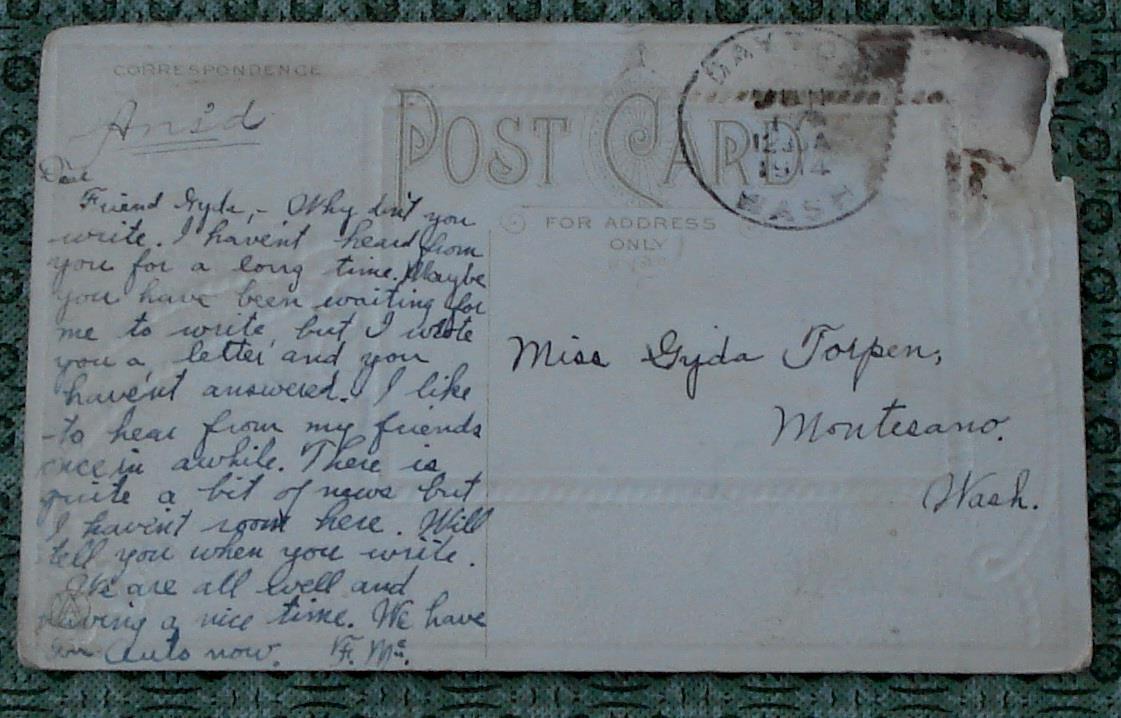 CORRESPONDENCE
Ans'd
POST CARD
DAYTON
12
1914
WASH
FOR ADDRESS
ONLY
Dear
Friend Gyda,- Why don't you
write. I haven't heard from
you for a long time. Maybe
you have been waiting for
me to write, but I wrote
you a letter and you
haven't answered. I like
to hear from my friends
once in awhile. There is
quite a bit of news but
I haven't room here. Will
tell you when you write.
We are all well and
having a nice time. We have
an auto now. F. Mc.
Miss Gyda Torpen,
Montesano.
Wash.